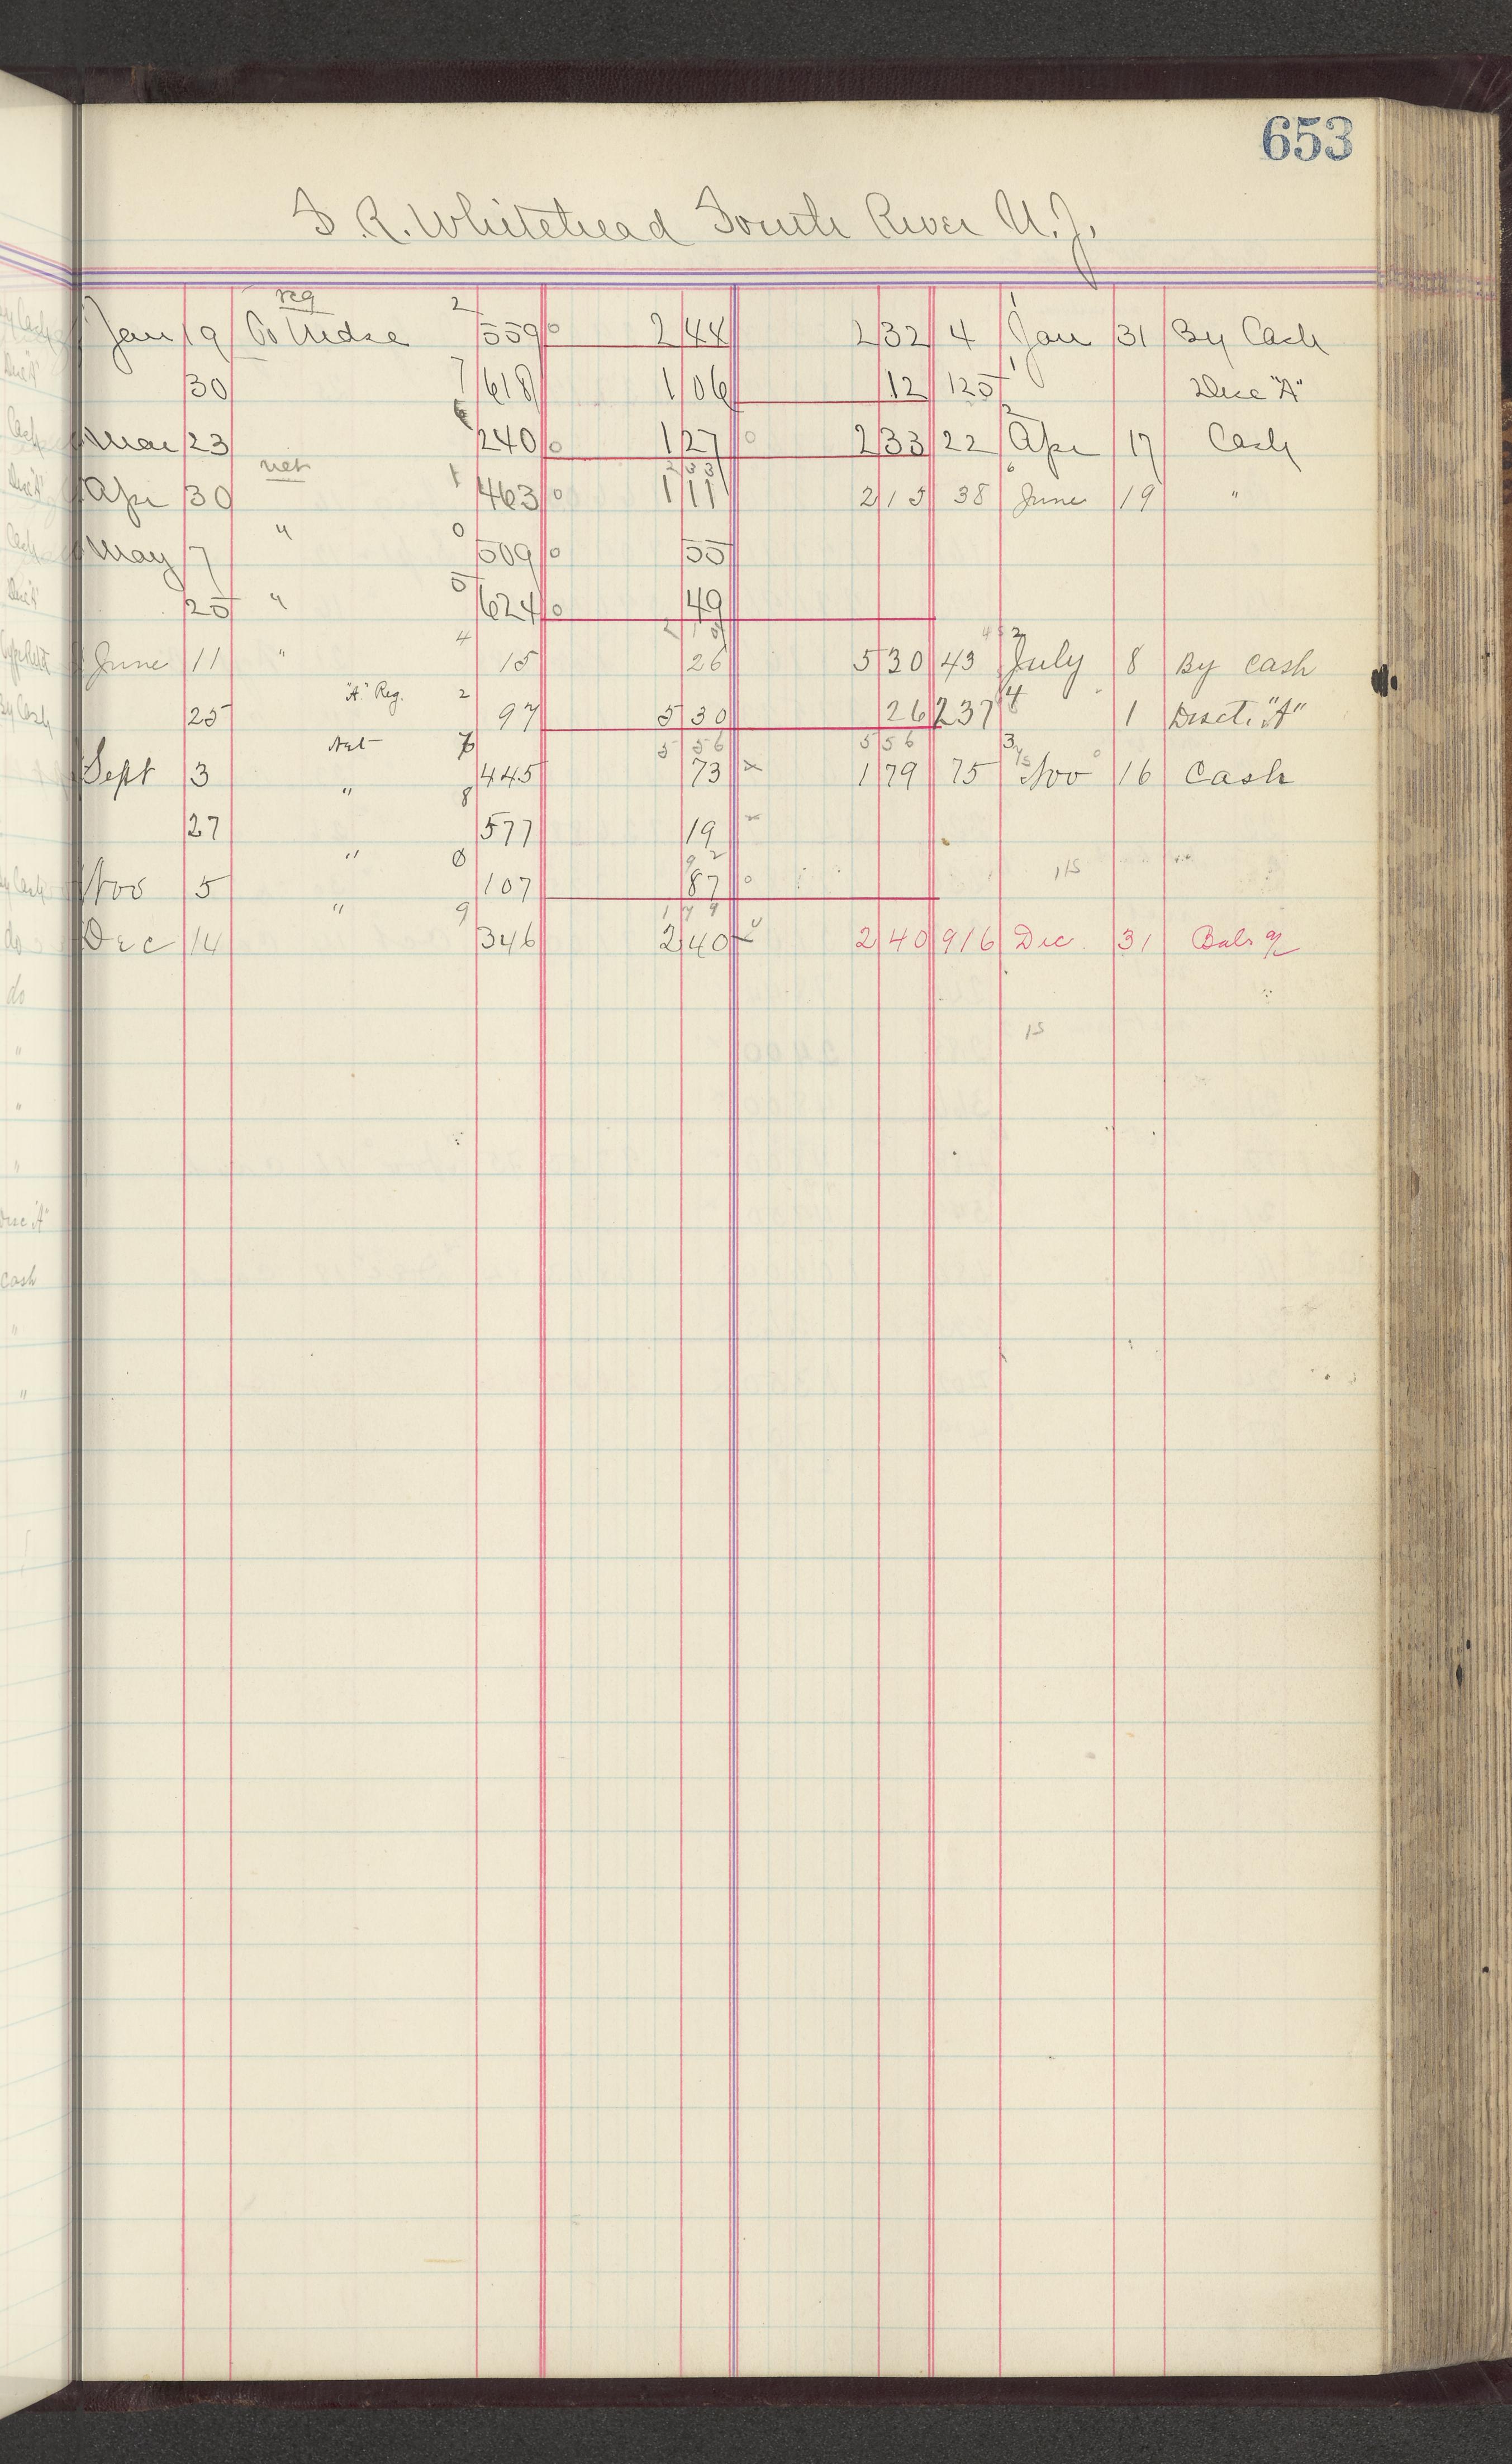 653
S. R. Whitehead South River N.J.
reg 2
Jan 19 To Mdse 559 0 2 44 2 32 4 Jan 31 By Cash
7
30 618 1 06 12 125 Disc "A"
6 2
Mar 23 240 0 1 27 0 2 33 22 Apr 17 Cash
net 1 2 33
Apr 30 463 0 1 11 2 15 38 June 19 "
May 7 " 0 509 0 55
25 " 5 624 0 49
June 11 " 4 15 26 5 30 43 July 8 By Cash
25 "A" Reg. 2 97 5 30 26 237 1 Disct. "A"
Net 5 56 5 56 3
Sept 3 445 73 x 1 79 75 Nov 16 Cash
27 " 8 577 19 x
92
Nov 5 " 107 87 0 115
1 79
Dec 14 " 9 346 2 40 2 40 916 Dec. 31 Bals 9/2
15